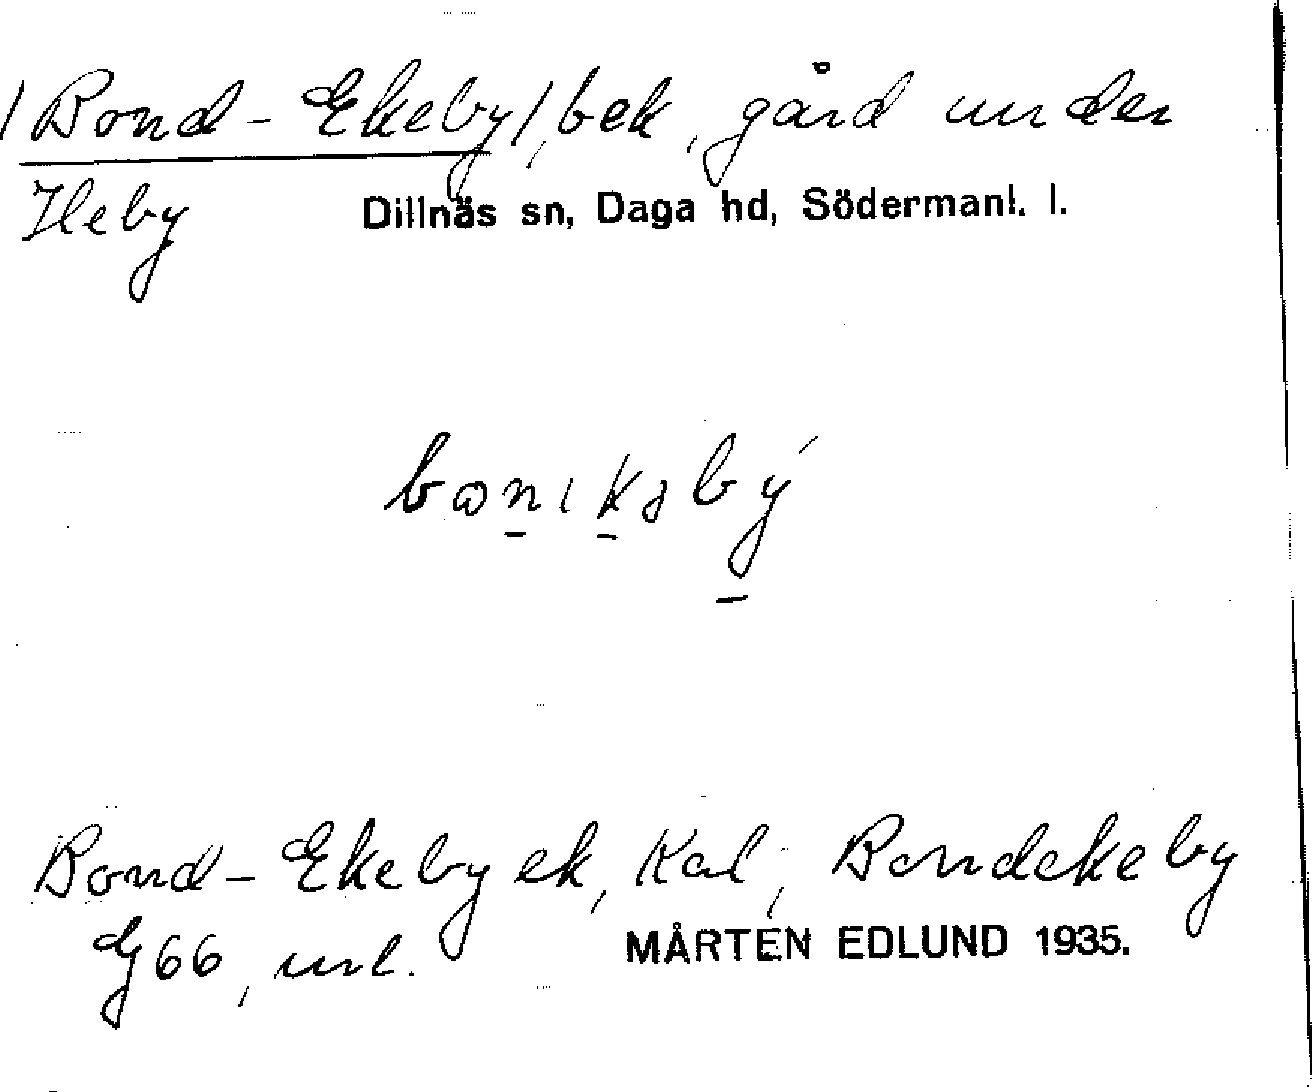 /Bond-Ekeby/, bek, gård under
Heby
Dillnäs sn, Daga hd, Södermanl. l.
Bond-Ekeby ek, Kal; Bondekeby
G 66, url.
MÅRTEN EDLUND 1935.